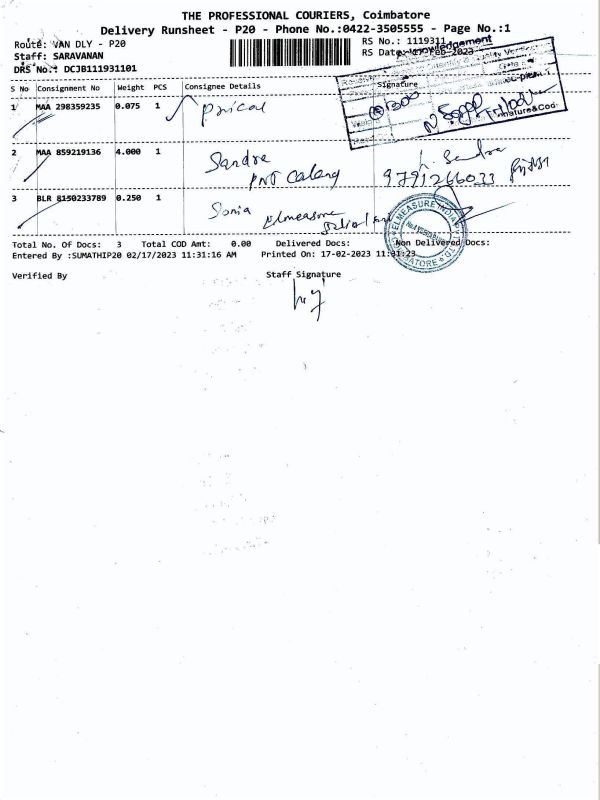 THE PROFESSIONAL COURIERS, Coimbatore
Delivery Runsheet - P20 - Phone No.:0422-3505555 - Page No.:1
Route: VAN DLY - P20
RS No.: 1119311
Staff: SARAVANAN
RS Date: 17-Feb-2023
DRS No.: DCJB111931101
S No Consignment No Weight PCS Consignee Details Signature
1 MAA 298359235 0.075 1 Pricol
2 MAA 859219136 4.000 1 Sandra
9791266033
3 BLR 8150233789 0.250 1 Sonia Elmeasure
ELMEASURE INDIA
COIMBATORE
Total No. Of Docs: 3 Total COD Amt: 0.00 Delivered Docs: Non Delivered Docs:
Entered By :SUMATHIP20 02/17/2023 11:31:16 AM Printed On: 17-02-2023 11:31:23
Verified By Staff Signature